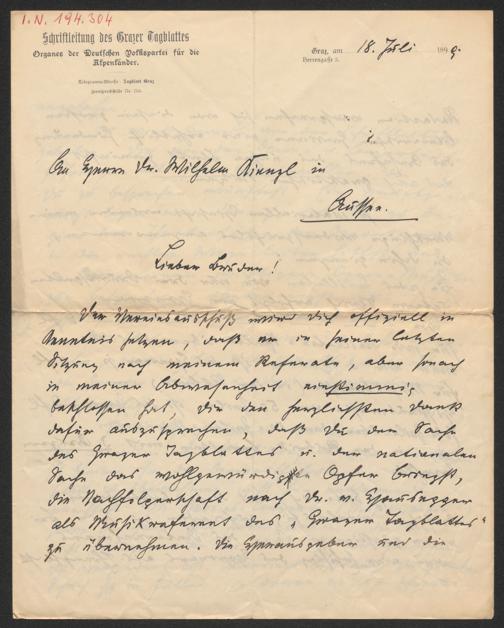 I.N. 194.304
Schriftleitung des Grazer Tagblattes
Organes der Deutschen Volkspartei für die
Alpenländer.
Telegramm-Adresse: Tagblatt Graz
Fernsprechstelle Nr.
Graz, am 18. Juli 1899.
Herrengasse
An Herrn Dr. Wilhelm Kienzl in
Aussee.
Lieber Bruder!
Der Vereinsausschuß wird dich offiziell in
Kenntnis setzen, daß er in seiner letzten
Sitzung nach meinem Referate, aber
in meiner Abwesenheit einstimmig
beschlossen hat, dir den herzlichsten Dank
dafür auszusprechen, daß du der Sache
des Grazer Tagblattes u. der nationalen
Sache das Opfer bringst,
die Nachfolgerschaft nach Dr. v. Hausegger
als Musikreferent des „Grazer Tagblattes"
zu übernehmen. Die Herausgeber und die